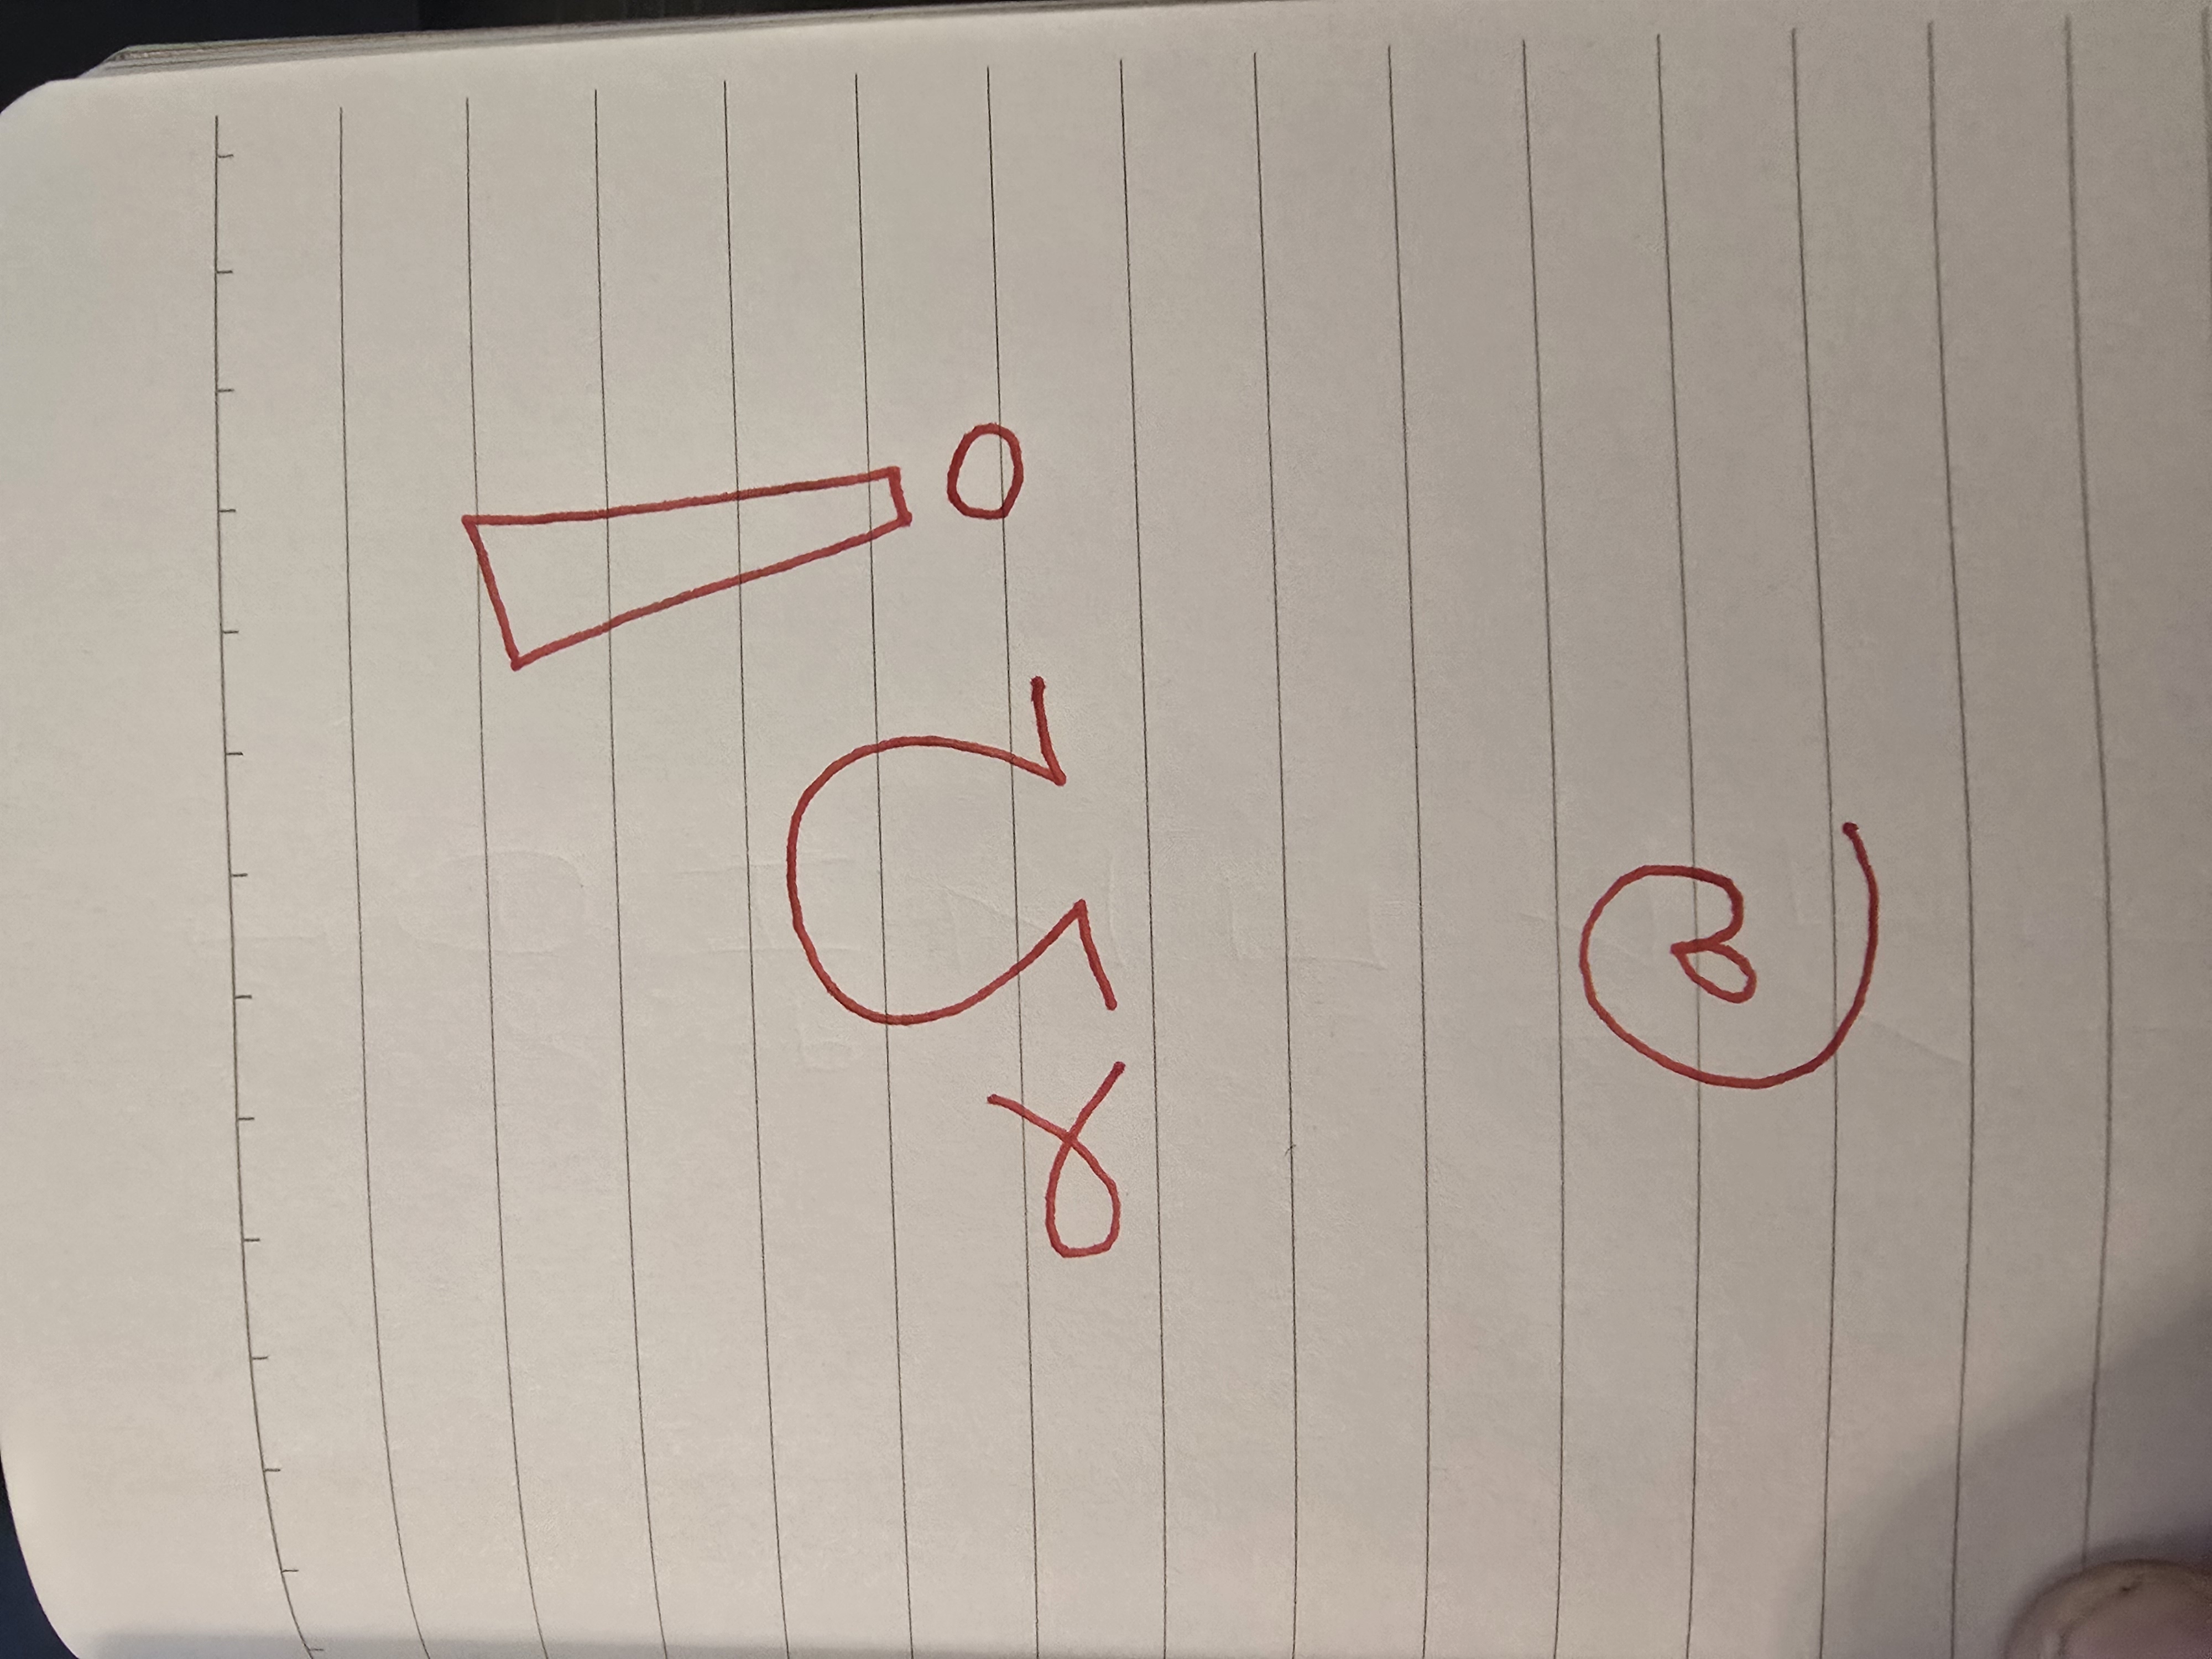 αΩ!
@